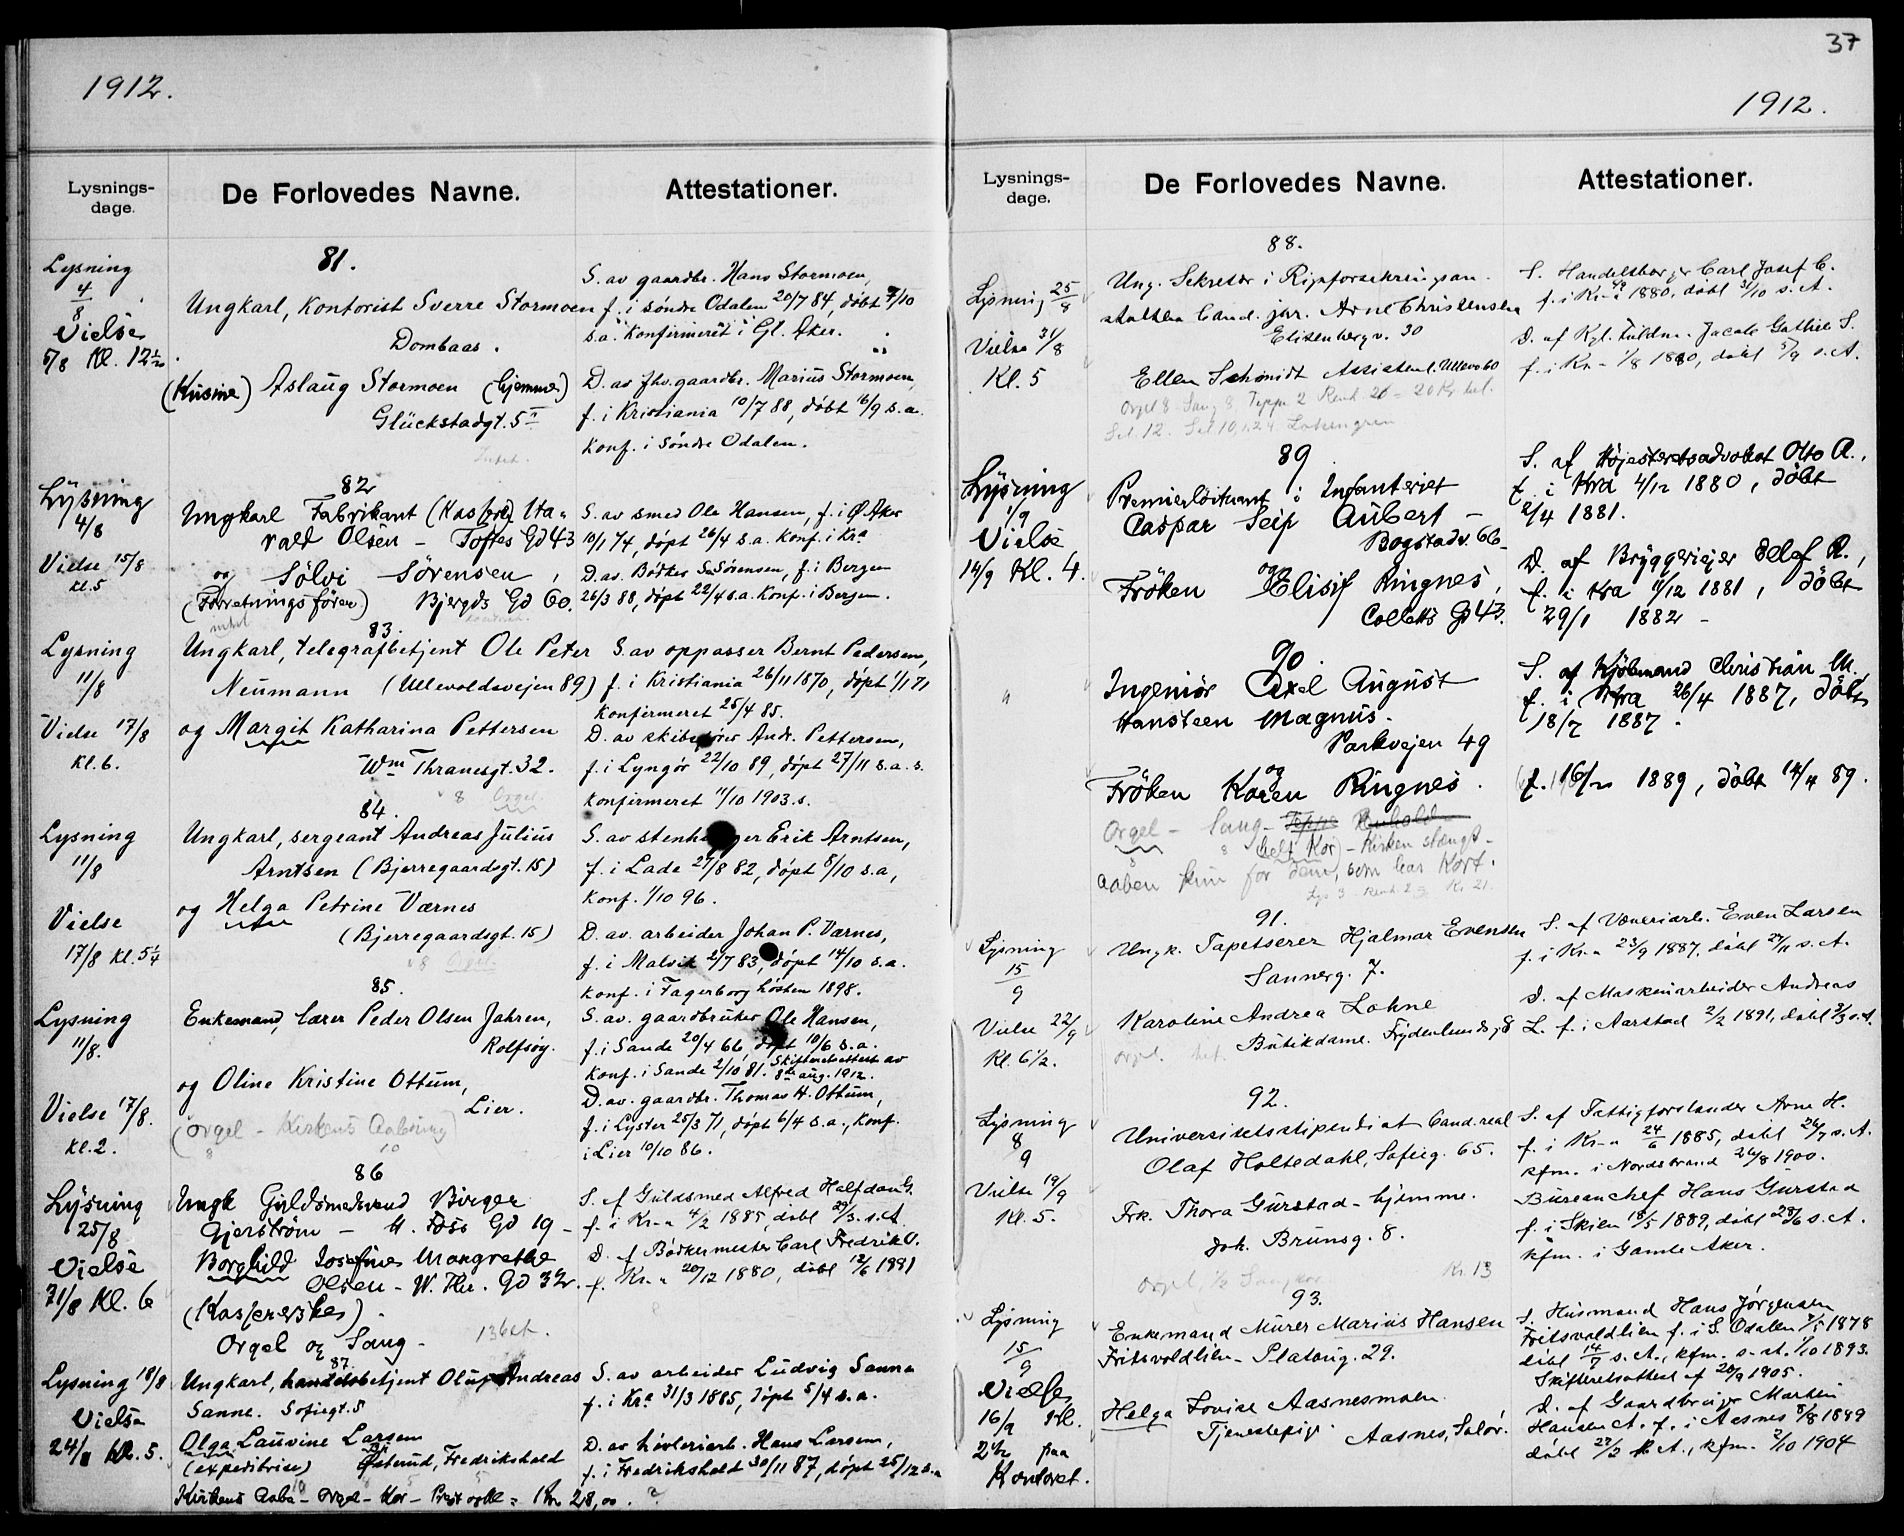 37
1912.
Lysnings-
dage.
De Forlovedes Navne.
Attestationer.
81.
Lysning
4/8
Vielse
5/8 Kl. 12½
Ungkarl, Kontorist Sverre Stormoen
Dombaas.
(Kusine) Aslaug Stormoen (hjemme)
Glückstadgt. 5 I
S. av gaardbr. Hans Stormoen,
f. i Søndre Odalen 20/7 84, døbt 7/10
s.a. Konfirmeret i Gl. Aker.
D. av fhv. gaardbr. Marius Stormoen,
f. i Kristiania 10/7 88, døbt 16/9 s.a.
Konf. i Søndre Odalen.
82
Lysning
4/8
Vielse 15/8
Kl. 5
Ungkarl Fabrikant
vald Olsen – Toftes Gd 43
og Sølvi Sørensen,
(Forretningsfører) Bjergds Gd 60.
S. av smed Ole Hansen, f. i Ø. Aker
10/1 74, døpt 26/4 s.a. Konf. i Kra
D. av Bødker S. Sørensen, f. i Bergen
26/3 88, døpt 22/4 s.a. Konf. i Bergen.
83.
Lysning
11/8
Vielse 17/8
Kl. 6.
Ungkarl, telegrafbetjent Ole Peter
Neumann (Ullevoldsvejen 89)
og Margit Katharina Pettersen
Wm Thranesgt. 32.
8 Orgel
S. av oppasser Bernt Pedersen,
f. i Kristiania 26/11 1870, døpt 1/1 71
Konfirmeret 25/4 85.
D. av Andr. Pettersen,
f. i Lyngør 22/10 89, døpt 27/11 s.a. s.
Konfirmeret 11/10 1903. s.
84.
Lysning
11/8
Vielse
17/8 Kl. 5¼
Ungkarl, sergeant Andreas Julius
Arntsen (Bjerregaardsgt. 15)
og Helga Petrine Værnes
(Bjerregaardsgt. 15)
8 Orgel
S. av Erik Arntsen,
f. i Lade 27/8 82, døpt 8/10 s.a,
Konf. 1/10 96.
D. av. arbeider Johan P. Værnes,
f. i Malvik 2/7 83, døpt 14/10 s.a.
Konf. i Fagerborg høsten 1898.
85.
Lysning
11/8.
Vielse 17/8.
Kl. 2.
Enkemand, lærer Peder Olsen Jahren,
Rolfsøy.
og Oline Kristine Ottum,
Lier.
(orgel – Kirkens Aabning)
8 10
S. av. gaardbruker Ole Hansen,
f. i Sande 20/4 66, døpt 10/6 s.a.
Konf. i Sande 2/10 81. Skifteretsattest av
8de aug. 1912.
D. av. gaardbr. Thomas H. Ottum,
f. i Lyster 25/3 71, døpt 6/4 s.a., Konf.
i Lier 10/10 86.
86
Lysning
25/8
Vielse
31/8 Kl. 6
Ungk Guldsmedsvend Birger
Gjerstrøm – M. Gd 19 –
Borghild Josefine Margrethe
Olsen – W. Thr. Gd 32.
(Kasjererske)
Orgel og Sang –
S. af Guldsmed Alfred Halfdan G.
f. i Kr.a 4/2 1885, døbt 29/3 s.A.
D. af Bødkermester Carl Fredrik O.
f. Kr.a 20/12 1880, døbt 12/6 1881
87.
Lysning 18/8
Vielse
24/8 Kl. 5.
Ungkarl, handelsbetjent Oluf Andreas
Sanne. Sofiegt. 5
Olga Lauvine Larsen
(expeditrise) Østerud, Fredrikshald
Kirkens Aabn – Orgel – Kor – = Kr 28,00.
S. av arbeider Ludvig Sanne
f. i Kra 31/3 1885, døpt 5/4 s.a.
D. av høvleriarb. Hans Larsen,
f. i Fredrikshald 30/11 87, døpt 25/12 s.a
1912.
Lysnings-
dage.
De Forlovedes Navne.
Attestationer.
88.
Lysning 25/8
Vielse 31/8
Kl. 5
Ung. Sekretær i Rigsforsikringsan
stalten Cand. jur. Arne Christensen
Elisenbergv. 30
Ellen Schmidt Assistent. Ullevv 60
Orgel 8 Sang 8 Teppe 2
S. Handelsborger Carl Josef C.
f. i Kr.a 1880, døbt 31/10 s.A.
D. af Kgl. Fuldm. Jacob Gathe S.
f. i Kr.a 1/8 1880, døbt 5/9 s.A.
89
Lysning
1/9
Vielse
14/9 Kl. 4.
Premierløitnant i Infanteriet
Caspar Seip Aubert –
Bogstadv. 66 –
og
Frøken Elisif Ringnes,
Colletts Gd 43.
S. af Højesteretsadvokat Otto A.,
f. i Kra 4/12 1880, døbt
2/4 1881.
D. af Bryggeriejer R.,
f. i Kra 11/12 1881, døbt
29/1 1882 –
90.
"
Ingeniør Axel August
Hansteen Magnus.
Parkvejen 49
og
Frøken Karen Ringnes.
Orgel – Sang – Teppe
8 8 helt Kor) – Kirken stængt –
aaben kun for dem, som har Kort.
S. af Kjøbmand Christian M.
f. i Kra 26/4 1887, døbt
18/7 1887.
1889, døbt 14/4 89.
91.
Lysning
15/9
Vielse 22/9
Kl. 6½.
Ungk. Tapetserer Hjalmar Evensen
Sannerg. 7.
Karoline Andrea Lohne
Butikdame. Frydenlundsg 8
orgel.
S. af Væveriarb. Even Larsen
f. i Kr.a 23/9 1887, døbt 27/11 s.A.
D. af Maskinarbeider Andreas
L. f. i Aarstad 2/2 1891, døbt 3/3 s.A.
92.
Lysning
8/9
Vielse 19/9
Kl. 5.
Universitetsstipendiat Cand. real
Olaf Holtedahl, Sofieg. 65.
Frk. Thora Gurstad – hjemme.
Joh. Brunsg. 8.
orgel, ½ Sangkor
Kr. 13
S. af Fattigforstander Arne H.
f. i Kr.a 24/6 1885, døbt 26/7 s.A.
kfm. i Nordstrand 26/8 1900.
Bureauchef Hans Gurstad
f. i Skien 18/5 1889, døbt 28/6 s.A.
kfm. i Gamle Aker.
93.
Lysning
15/9
Vielse
16/9 Kl.
2½ paa
Kontoret.
Enkemand Murer Marius Hansen
Fritsvoldlien – Platoug. 29.
Helga Lovise Aasnesmoen
Tjenestepige
Aasnes, Solør.
S. Husmand Hans Jørgensen
Fritsvoldlien f. i S. Odalen 1878
døbt 14/7 s.A., kfm. s.st. 1/10 1893.
Skifteretsattest af 20/9 1905.
D. af Gaardbruger Martin
Hansen A. f. i Aasnes 8/8 1889
døbt 22/2 A., kfm. 2/10 1904